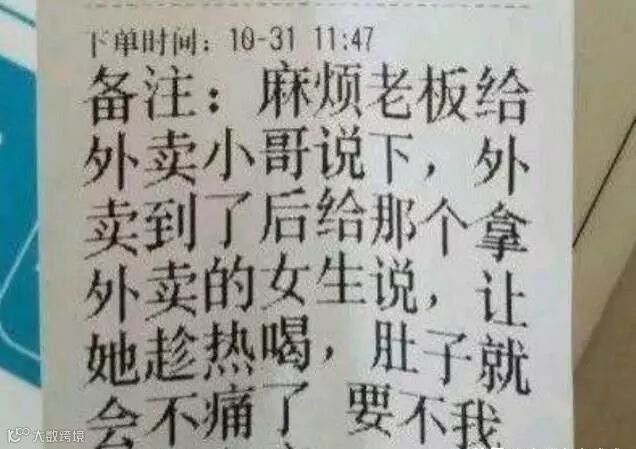 下单时间：10-31 11:47
备注：麻烦老板给
外卖小哥说下，外
卖到了后给那个拿
外卖的女生说，让
她趁热喝，肚子就
会不痛了 要不我
大数跨境